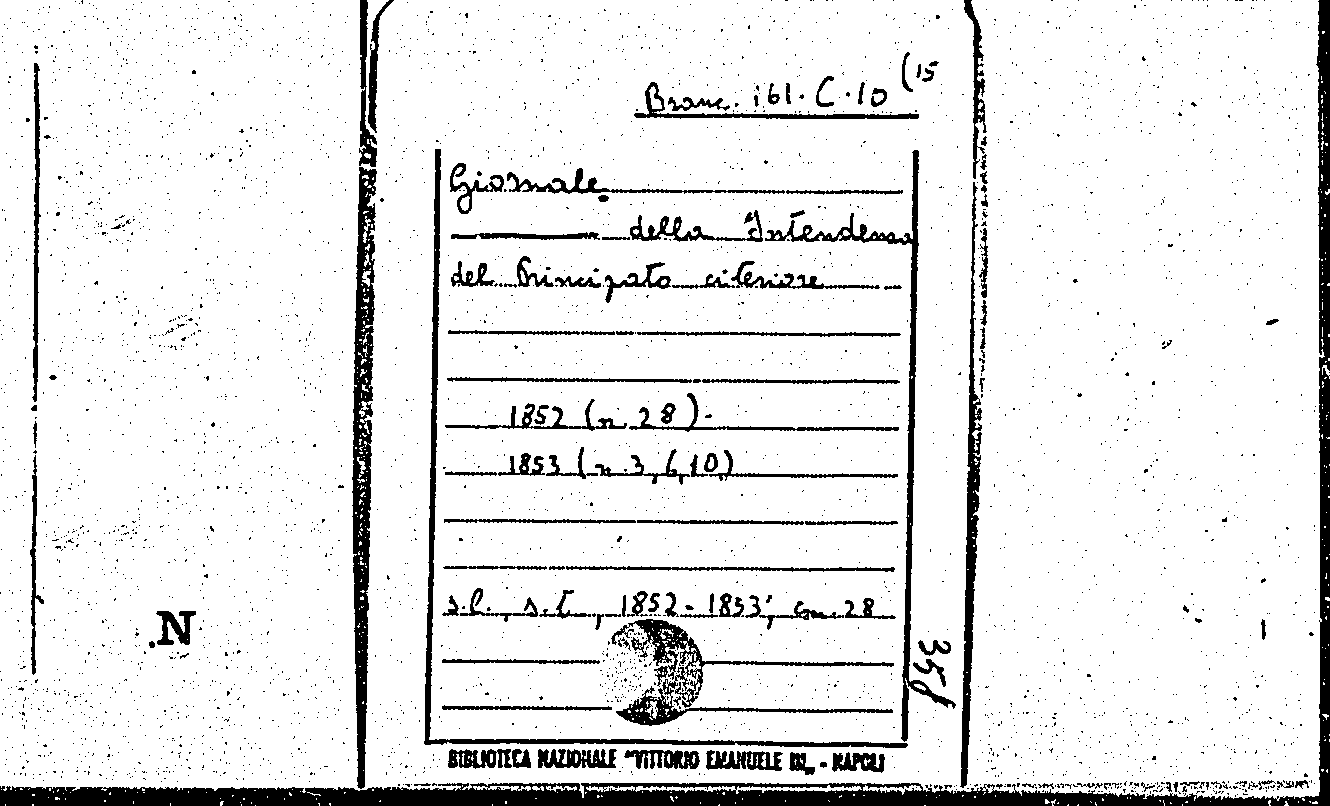 Branc. 161. C. 10 (15
Giornale
della Intendenza
del Principato citeriore
1852 (n. 28).
1853 (n. 3, 6, 10)
s.l., s.t., 1852-1853; cm. 28
.N
BIBLIOTECA NAZIONALE "VITTORIO EMANUELE III„ - NAPOLI